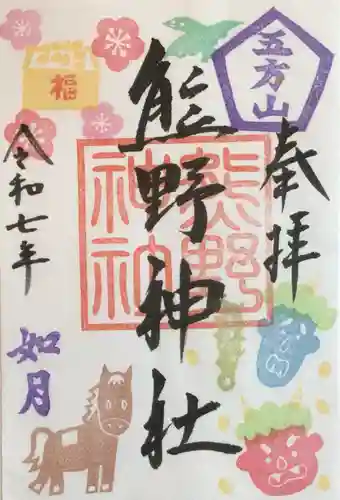 五方山
奉拝
熊野神社
熊野
神社
福
令和七年
如月